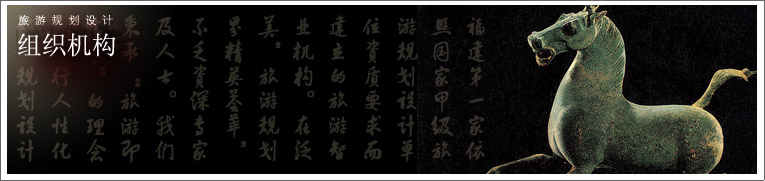 旅游规划设计
组织机构
福建第一家依
照国家甲级旅
游规划设计单
位资质要求而
建立的旅游智
业机构。在泛
美。旅游规划
界精英荟萃。
不乏资深专家
及人士。我们
秉承 旅游即
的理念
行人性化
规划设计